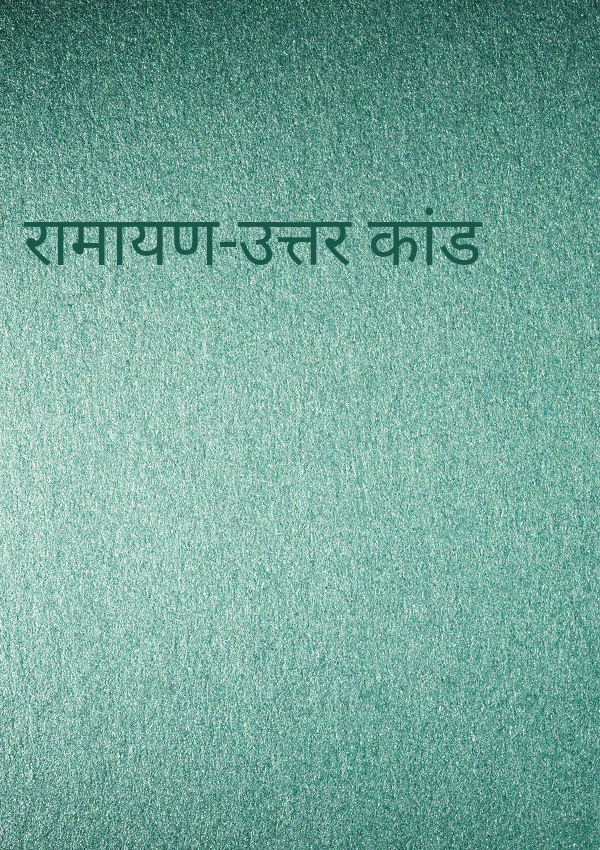 रामायण-उत्तर कांड